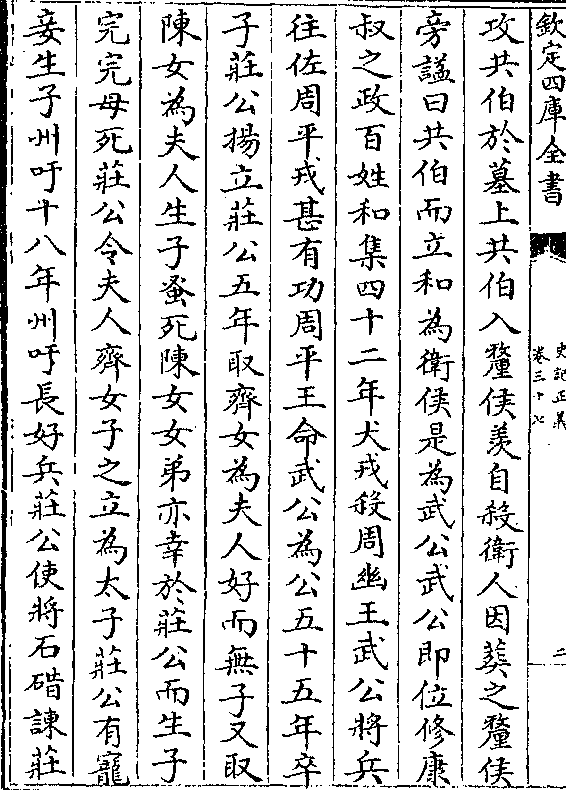 欽定四庫全書
史記正義
卷三十七
二
攻共伯於墓上共伯入釐侯羨自殺衛人因葬之釐侯
旁諡曰共伯而立和為衛侯是為武公武公即位修康
叔之政百姓和集四十二年犬戎殺周幽王武公將兵
往佐周平戎甚有功周平王命武公為公五十五年卒
子莊公揚立莊公五年取齊女為夫人好而無子又取
陳女為夫人生子蚤死陳女女弟亦幸於莊公而生子
完完母死莊公令夫人齊女子之立為太子莊公有寵
妾生子州吁十八年州吁長好兵莊公使將石碏諫莊